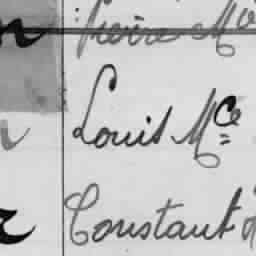 Pierre M
Louis Mce
Constant